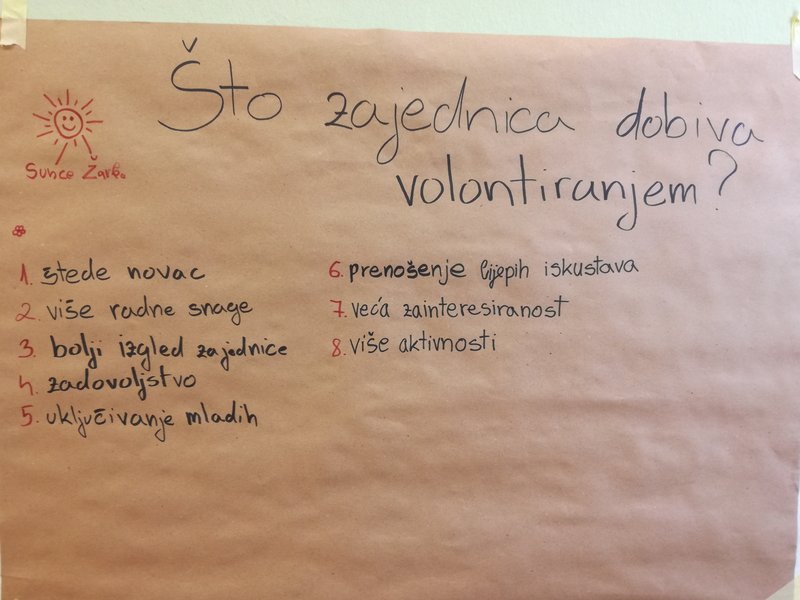 Što zajednica dobiva
volontiranjem?
Sunce Žarko
1. štede novac
2. više radne snage
3. bolji izgled zajednice
4. zadovoljstvo
5. uključivanje mladih
6. prenošenje lijepih iskustava
7. veća zainteresiranost
8. više aktivnosti